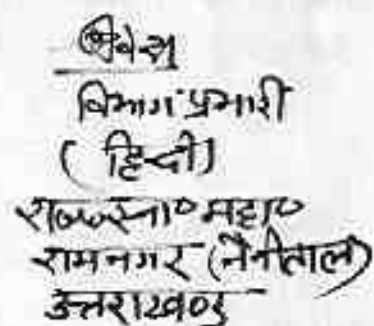 विभाग प्रभारी
(हिन्दी)
महा०
रामनगर (नैनीताल)
उत्तराखण्ड